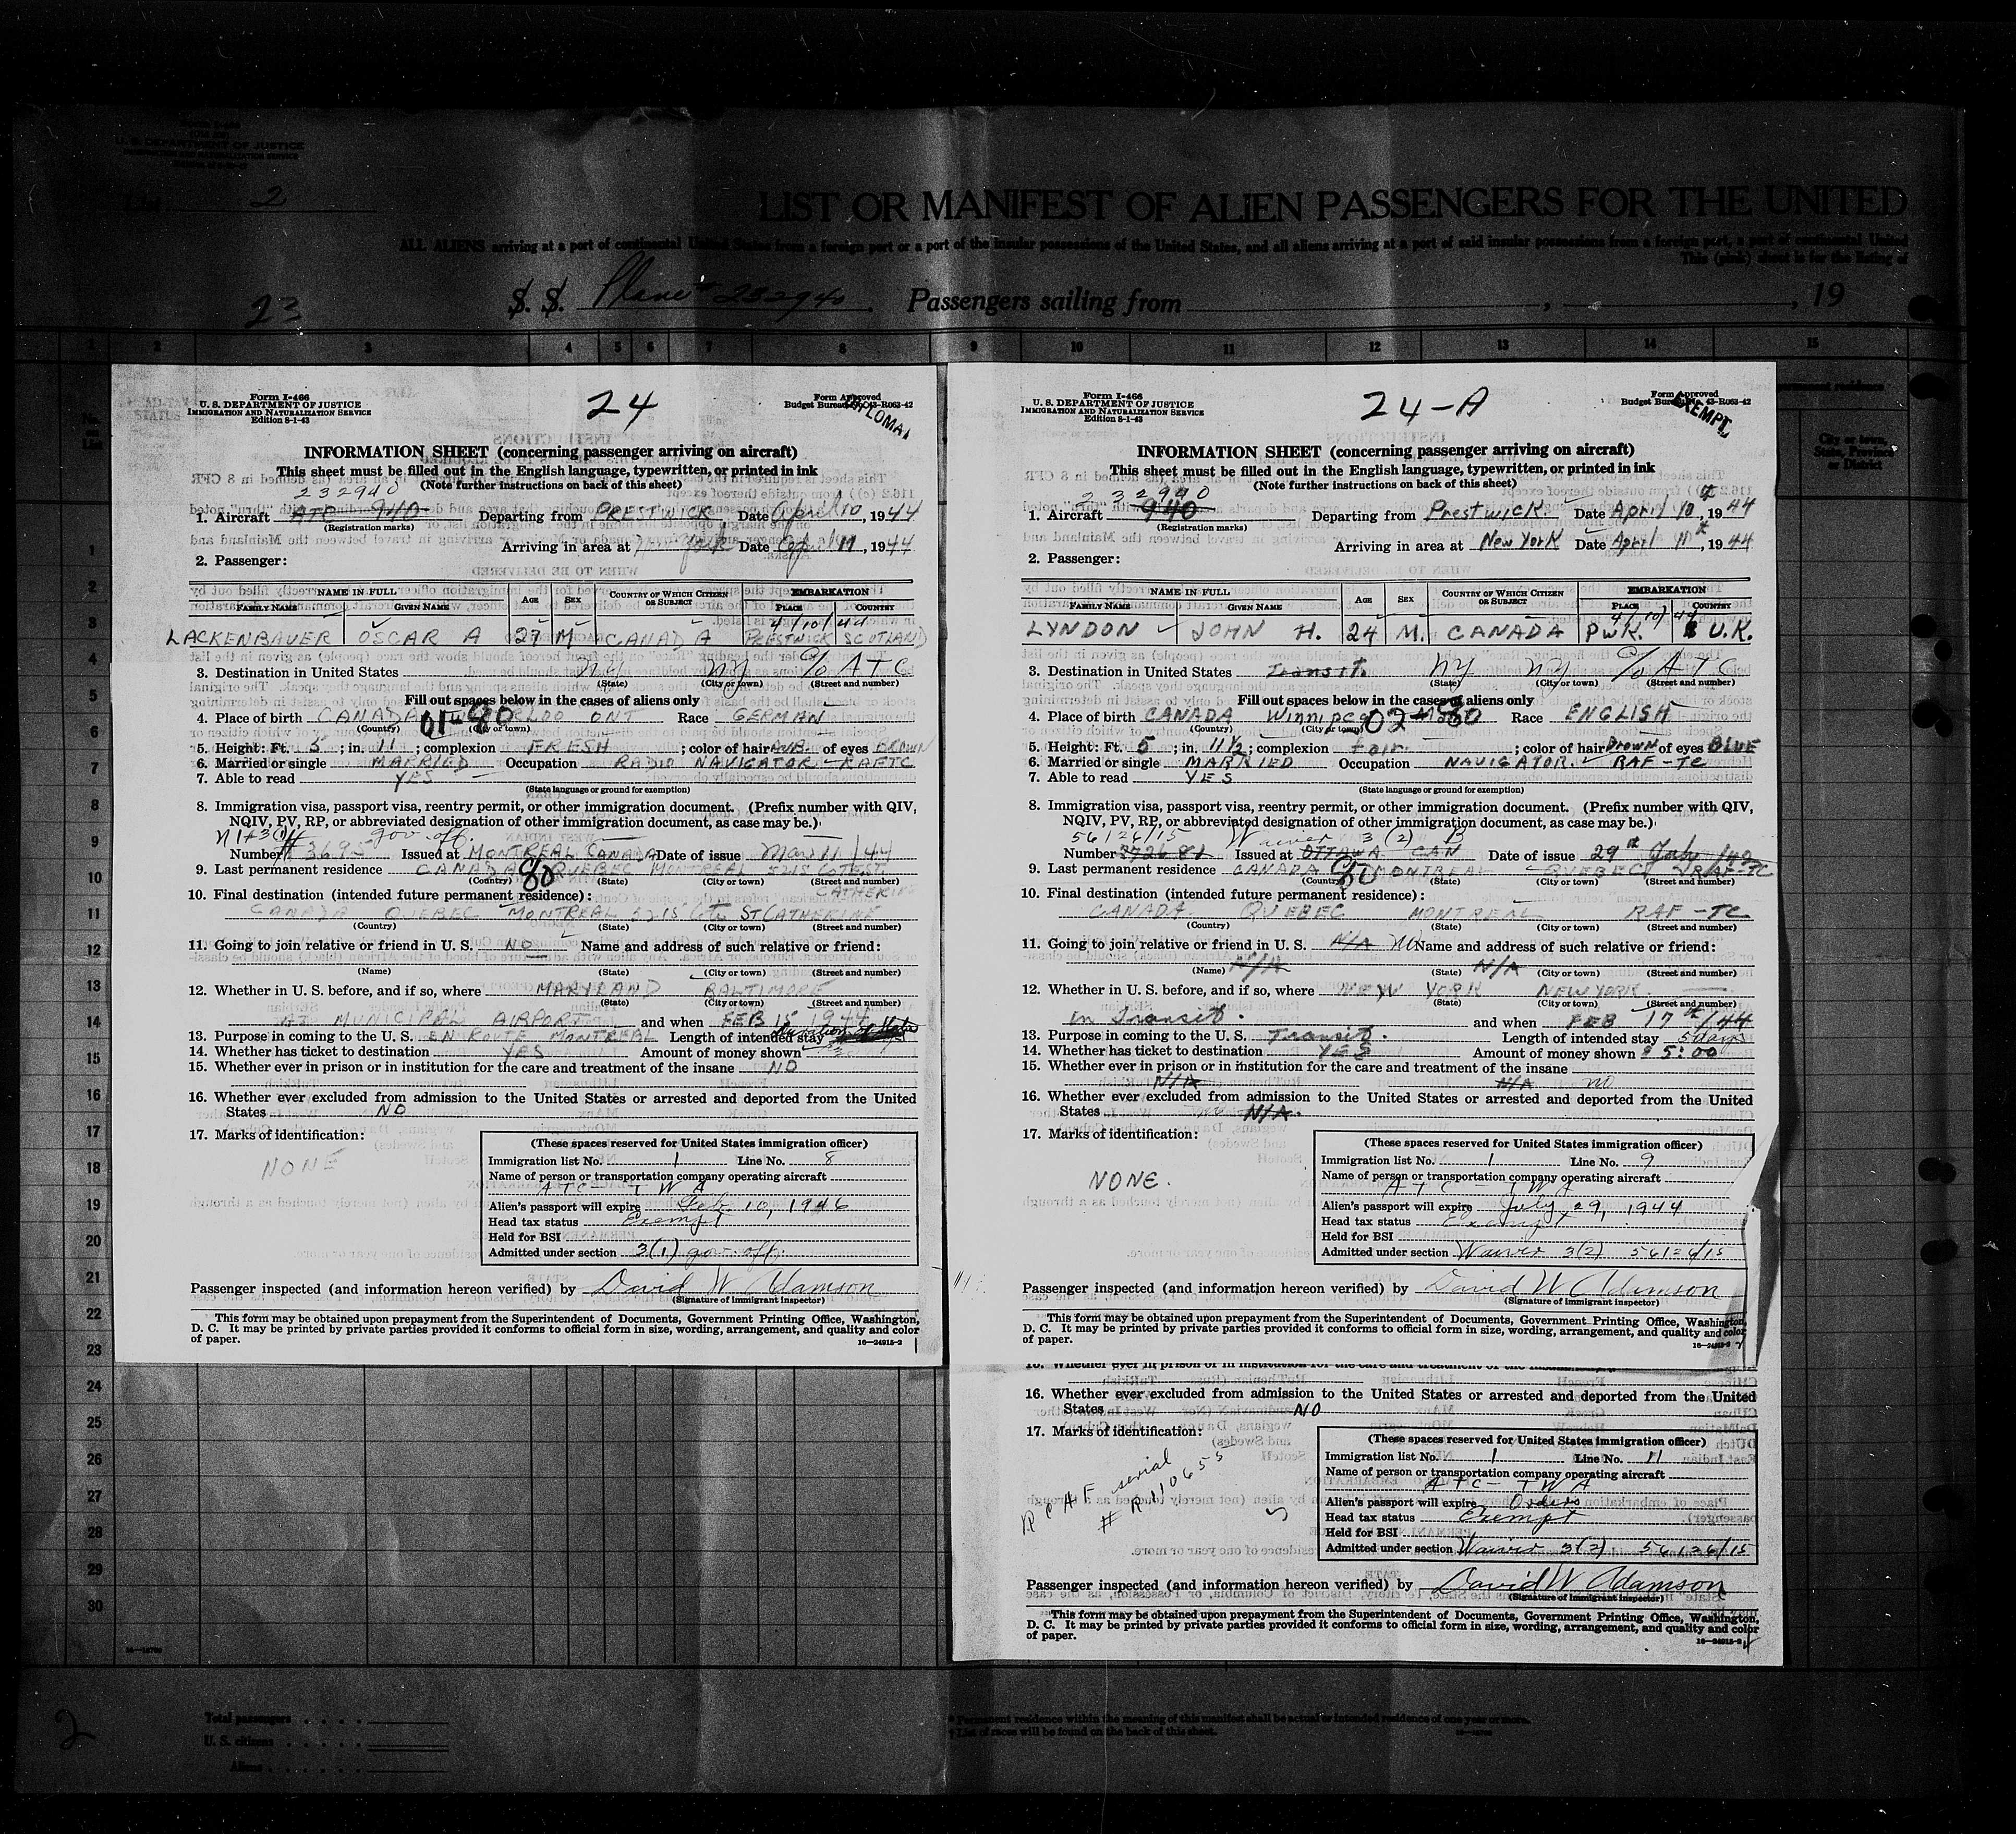 U. S. DEPARTMENT OF JUSTICE
2
LIST OR MANIFEST OF ALIEN PASSENGERS FOR THE UNITED
ALL ALIENS arriving at a port of continental United States from a foreign port or a port of the insular possessions of the United States, and all aliens arriving at a port of said insular possessions from a foreign port, a port of continental United
This (pink) sheet is for the listing of
23
S. S. Plane # 232940 Passengers sailing from , , 19
1 2 3 4 5 6 7 8 9 10 11 12 13 14 15
Form I-466
U. S. DEPARTMENT OF JUSTICE
IMMIGRATION AND NATURALIZATION SERVICE
Edition 8-1-43
24
Form Approved
Budget Bureau No. 43-R063-42
INFORMATION SHEET (concerning passenger arriving on aircraft)
This sheet must be filled out in the English language, typewritten, or printed in ink
(Note further instructions on back of this sheet)
232940
1. Aircraft ATC 940 Departing from PRESTWICK Date April 10, 1944
(Registration marks)
Arriving in area at York Date April 11, 1944
2. Passenger:
NAME IN FULL AGE SEX COUNTRY OF WHICH CITIZEN OR SUBJECT EMBARKATION
FAMILY NAME GIVEN NAME PLACE COUNTRY
4/10/44
LACKENBAUER OSCAR A 27 M CANADA PRESTWICK SCOTLAND
3. Destination in United States NY NY c/o ATC
(State) (City or town) (Street and number)
Fill out spaces below in the cases of aliens only
4. Place of birth CANADA ONT Race GERMAN
01-80
(Country) (City or town)
5. Height: Ft. 5; in. 11; complexion FRESH; color of hair AUB. of eyes BROWN
6. Married or single MARRIED Occupation RADIO NAVIGATOR - RAFTC
7. Able to read YES
(State language or ground for exemption)
8. Immigration visa, passport visa, reentry permit, or other immigration document. (Prefix number with QIV,
NQIV, PV, RP, or abbreviated designation of other immigration document, as case may be.)
gov. off.
Number # 3695 Issued at MONTREAL CANADA Date of issue Mar 11/44
9. Last permanent residence CANADA QUEBEC MONTREAL 5215 COTE ST
CATHERINE
80
(Country) (State) (City or town) (Street and number)
10. Final destination (intended future permanent residence):
CANADA QUEBEC MONTREAL 5215 Cote ST CATHERINE
(Country) (State) (City or town) (Street and number)
11. Going to join relative or friend in U. S. NO Name and address of such relative or friend:
(Name) (State) (City or town) (Street and number)
12. Whether in U. S. before, and if so, where MARYLAND BALTIMORE
(State) (City or town) (Street and number)
AT MUNICIPAL AIRPORT and when FEB 15 1944
13. Purpose in coming to the U. S. EN ROUTE MONTREAL Length of intended stay duration of status
14. Whether has ticket to destination YES Amount of money shown
15. Whether ever in prison or in institution for the care and treatment of the insane NO
16. Whether ever excluded from admission to the United States or arrested and deported from the United
States NO
17. Marks of identification:
NONE
(These spaces reserved for United States immigration officer)
Immigration list No. 1 Line No. 8
Name of person or transportation company operating aircraft
ATC - TWA
Alien's passport will expire Feb. 10, 1946
Head tax status Exempt
Held for BSI
Admitted under section 3(1) gov. off.
Passenger inspected (and information hereon verified) by David W Adamson
(Signature of immigrant inspector)
This form may be obtained upon prepayment from the Superintendent of Documents, Government Printing Office, Washington,
D. C. It may be printed by private parties provided it conforms to official form in size, wording, arrangement, and quality and color
of paper.
16-24915-2
Form I-466
U. S. DEPARTMENT OF JUSTICE
IMMIGRATION AND NATURALIZATION SERVICE
Edition 8-1-43
24-A
Form Approved
Budget Bureau No. 43-R063-42
EXEMPT
INFORMATION SHEET (concerning passenger arriving on aircraft)
This sheet must be filled out in the English language, typewritten, or printed in ink
(Note further instructions on back of this sheet)
232940
1. Aircraft 940 Departing from Prestwick Date April 10th, 1944
(Registration marks)
Arriving in area at New York Date April 11th, 1944
2. Passenger:
NAME IN FULL AGE SEX COUNTRY OF WHICH CITIZEN OR SUBJECT EMBARKATION
FAMILY NAME GIVEN NAME PLACE COUNTRY
4/10/44
LYNDON JOHN H. 24 M. CANADA PWK. U.K.
3. Destination in United States Transit. NY NY c/o ATC
(State) (City or town) (Street and number)
Fill out spaces below in the cases of aliens only
4. Place of birth CANADA Winnipeg Race ENGLISH
02-80
(Country) (City or town)
5. Height: Ft. 5; in. 11 1/2; complexion fair.; color of hair Brown of eyes BLUE
6. Married or single MARRIED Occupation NAVIGATOR. RAF-TC
7. Able to read YES
(State language or ground for exemption)
8. Immigration visa, passport visa, reentry permit, or other immigration document. (Prefix number with QIV,
NQIV, PV, RP, or abbreviated designation of other immigration document, as case may be.)
56126/15 Waiver 3(2) B
Number 372681 Issued at OTTAWA CAN Date of issue 29th July /42
9. Last permanent residence CANADA MONTREAL QUEBEC RAF-TC
80
(Country) (State) (City or town) (Street and number)
10. Final destination (intended future permanent residence):
CANADA. QUEBEC MONTREAL RAF-TC
(Country) (State) (City or town) (Street and number)
11. Going to join relative or friend in U. S. N/A No Name and address of such relative or friend:
(Name) N/A (State) N/A (City or town) (Street and number)
12. Whether in U. S. before, and if so, where NEW YORK NEW YORK.
(State) (City or town) (Street and number)
In Transit. and when FEB 17th/44
13. Purpose in coming to the U. S. Transit. Length of intended stay 5 days
14. Whether has ticket to destination YES Amount of money shown $ 5:00
15. Whether ever in prison or in institution for the care and treatment of the insane
N/A N/A no
16. Whether ever excluded from admission to the United States or arrested and deported from the United
States no N/A.
17. Marks of identification:
NONE.
(These spaces reserved for United States immigration officer)
Immigration list No. 1 Line No. 9
Name of person or transportation company operating aircraft
ATC - TWA
Alien's passport will expire July 29, 1944
Head tax status Exempt
Held for BSI
Admitted under section Waiver 3(2) 56126/15
Passenger inspected (and information hereon verified) by David W Adamson
(Signature of immigrant inspector)
This form may be obtained upon prepayment from the Superintendent of Documents, Government Printing Office, Washington,
D. C. It may be printed by private parties provided it conforms to official form in size, wording, arrangement, and quality and color
of paper.
16-24915-2
15. Whether ever in prison or in institution for the care and treatment of the insane
16. Whether ever excluded from admission to the United States or arrested and deported from the United
States NO
17. Marks of identification:
RCAF serial
# R110655
(These spaces reserved for United States immigration officer)
Immigration list No. 1 Line No. 11
Name of person or transportation company operating aircraft
ATC - TWA
Alien's passport will expire Orders
Head tax status Exempt
Held for BSI
Admitted under section Waiver 3(2) 56126/15
Passenger inspected (and information hereon verified) by David W Adamson
(Signature of immigrant inspector)
This form may be obtained upon prepayment from the Superintendent of Documents, Government Printing Office, Washington,
D. C. It may be printed by private parties provided it conforms to official form in size, wording, arrangement, and quality and color
of paper.
16-24915-2
City or town,
State, Province
or District
1
2
3
4
5
6
7
8
9
10
11
12
13
14
15
16
17
18
19
20
21
22
23
24
25
26
27
28
29
30
2
Total passengers
U. S. citizens
Aliens
* Permanent residence within the meaning of this manifest shall be actual or intended residence of one year or more.
† List of races will be found on the back of this sheet.